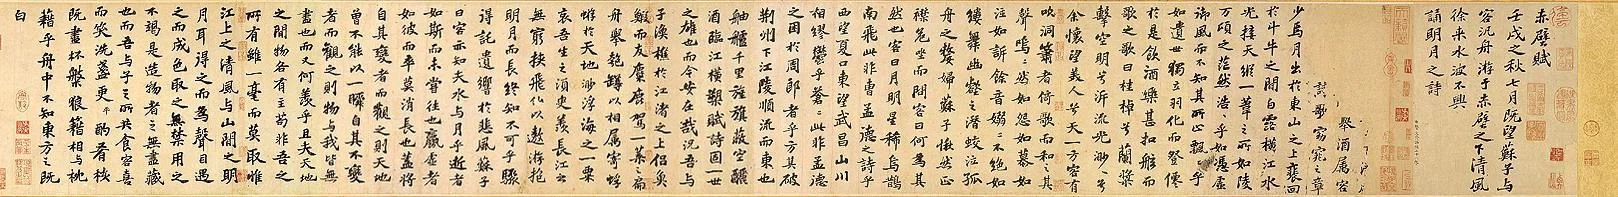 赤壁賦
壬戌之秋七月既望蘇子與
客汎舟游于赤壁之下清風
徐来水波不興
誦明月之詩
舉酒屬客
歌窈窕之章
少焉月出於東山之上裴回
於斗牛之間白露橫江水
光接天縱一葦之所如陵
万頃之茫然浩浩乎如憑虛
御風而不知其所止飄飄乎
如遺世獨立羽化而登僊
於是飲酒樂甚扣舷而
歌之歌曰桂棹兮蘭槳
擊空明兮泝流光渺渺兮
余懷望美人兮天一方客有
吹洞簫者倚歌而和之其
聲嗚嗚然如怨如慕如
泣如訴餘音嫋嫋不絕如
縷舞幽壑之潛蛟泣孤
舟之嫠婦蘇子愀然正
襟危坐而問客曰何為其
然也客曰月明星稀烏鵲
南飛此非曹孟德之詩乎
西望夏口東望武昌山川
相繆鬱乎蒼蒼此非孟德
之困於周郎者乎方其破
荊州下江陵順流而東也
舳艫千里旌旗蔽空釃
酒臨江橫槊賦詩固一世
之雄也而今安在哉況吾與
子漁樵於江渚之上侶魚
鰕而友麋鹿駕一葉之扁
舟舉匏罇以相屬寄蜉
蝣於天地渺浮海之一粟
哀吾生之須臾羨長江之
無窮挾飛仙以遨游抱
明月而長終知不可乎驟
得託遺響於悲風蘇子
曰客亦知夫水與月乎逝者
如斯而未嘗往也贏虛者
如彼而卒莫消長也蓋將
自其變者而觀之則天地
曾不能以一瞬自其不變
者而觀之則物與我皆無
盡也而又何羨乎且夫天地
之間物各有主苟非吾之
所有雖一毫而莫取惟
江上之清風與山間之明
月耳得之而為聲目遇
之而成色取之無禁用之
不竭是造物者之無盡藏
也而吾與子之所共食客喜
而笑洗盞更酌肴核
既盡杯盤狼籍相與枕
藉乎舟中不知東方之既
白